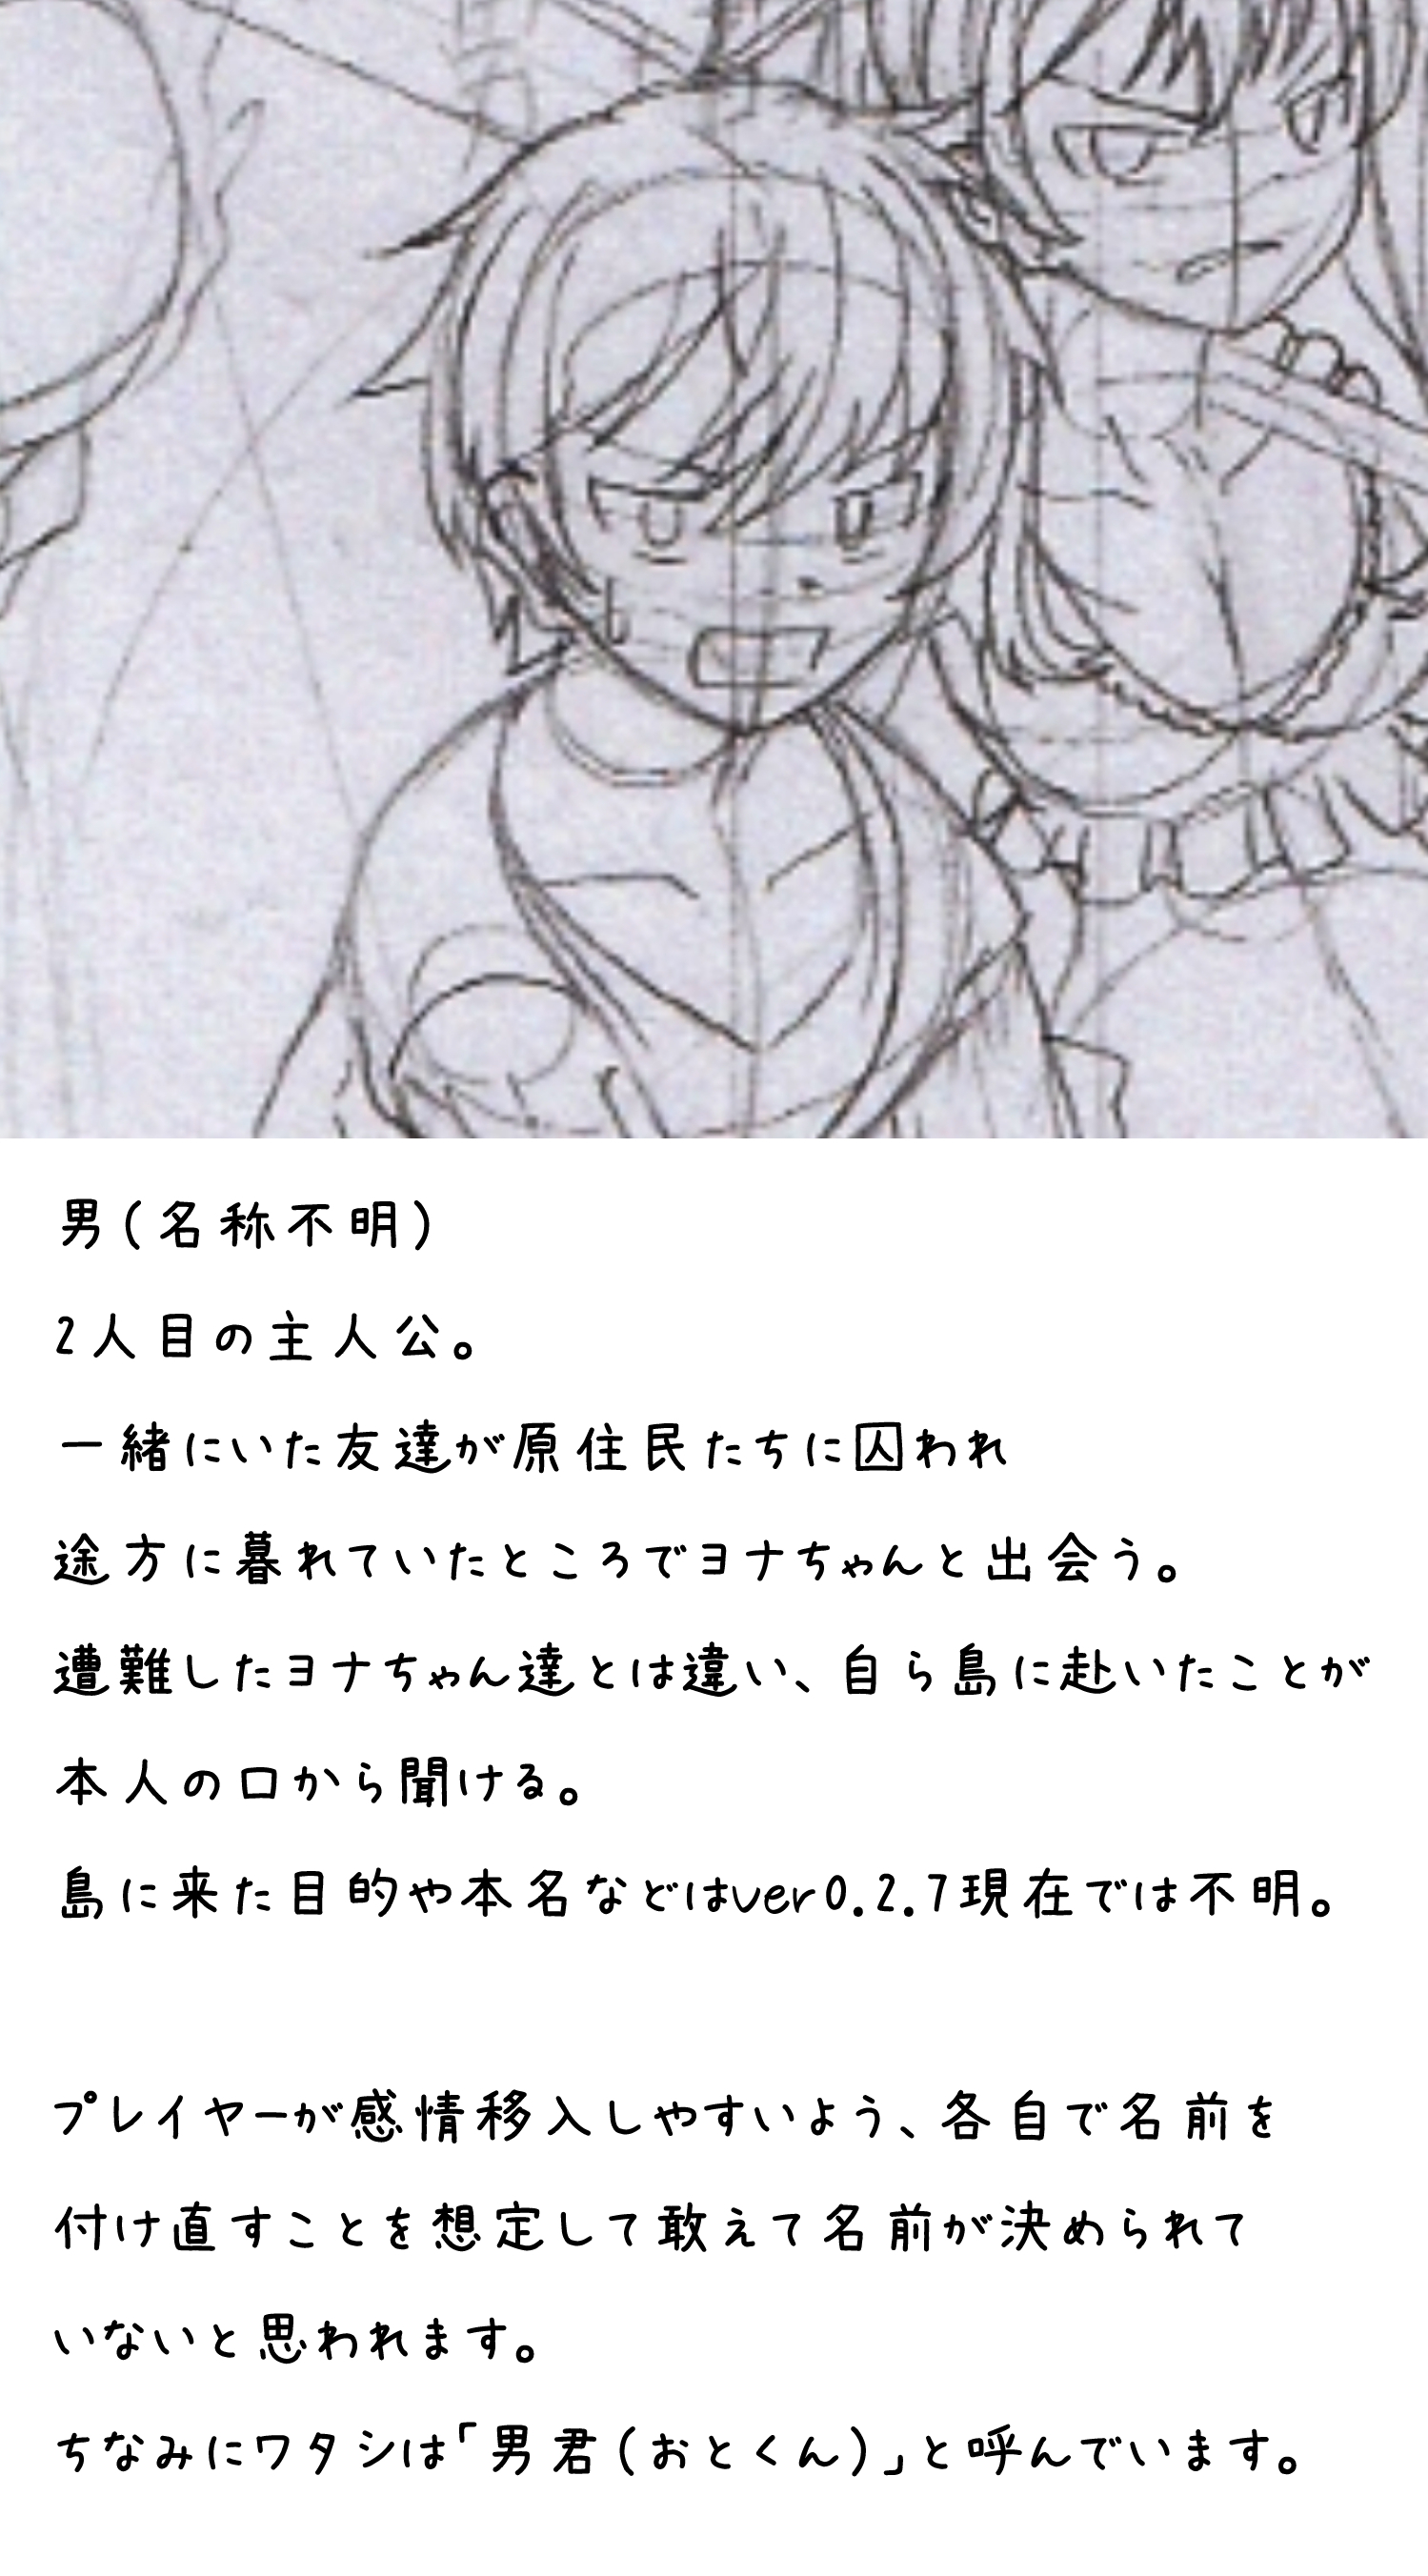 男(名称不明)
2人目の主人公。
一緒にいた友達が原住民たちに囚われ
途方に暮れていたところでヨナちゃんと出会う。
遭難したヨナちゃん達とは違い、自ら島に赴いたことが
本人の口から聞ける。
島に来た目的や本名などはver0.2.7現在では不明。
プレイヤーが感情移入しやすいよう、各自で名前を
付け直すことを想定して敢えて名前が決められて
いないと思われます。
ちなみにワタシは「男君(おとくん)」と呼んでいます。